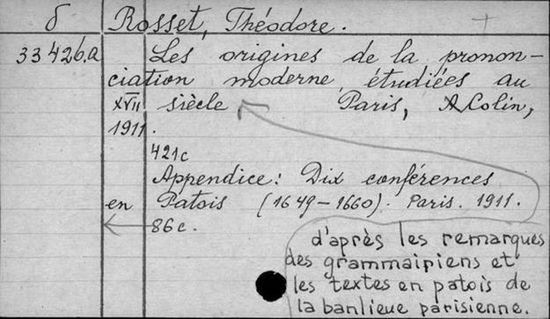 δ Rosset, Théodore.
33426.a Les origines de la pronon-
ciation moderne, étudiées au
XVII siècle Paris, A. Colin,
1911.
421c
Appendice: Dix conférences
en Patois (1649-1660). Paris. 1911.
86c.
d'après les remarques
des grammairiens et
les textes en patois de
la banlieue parisienne.